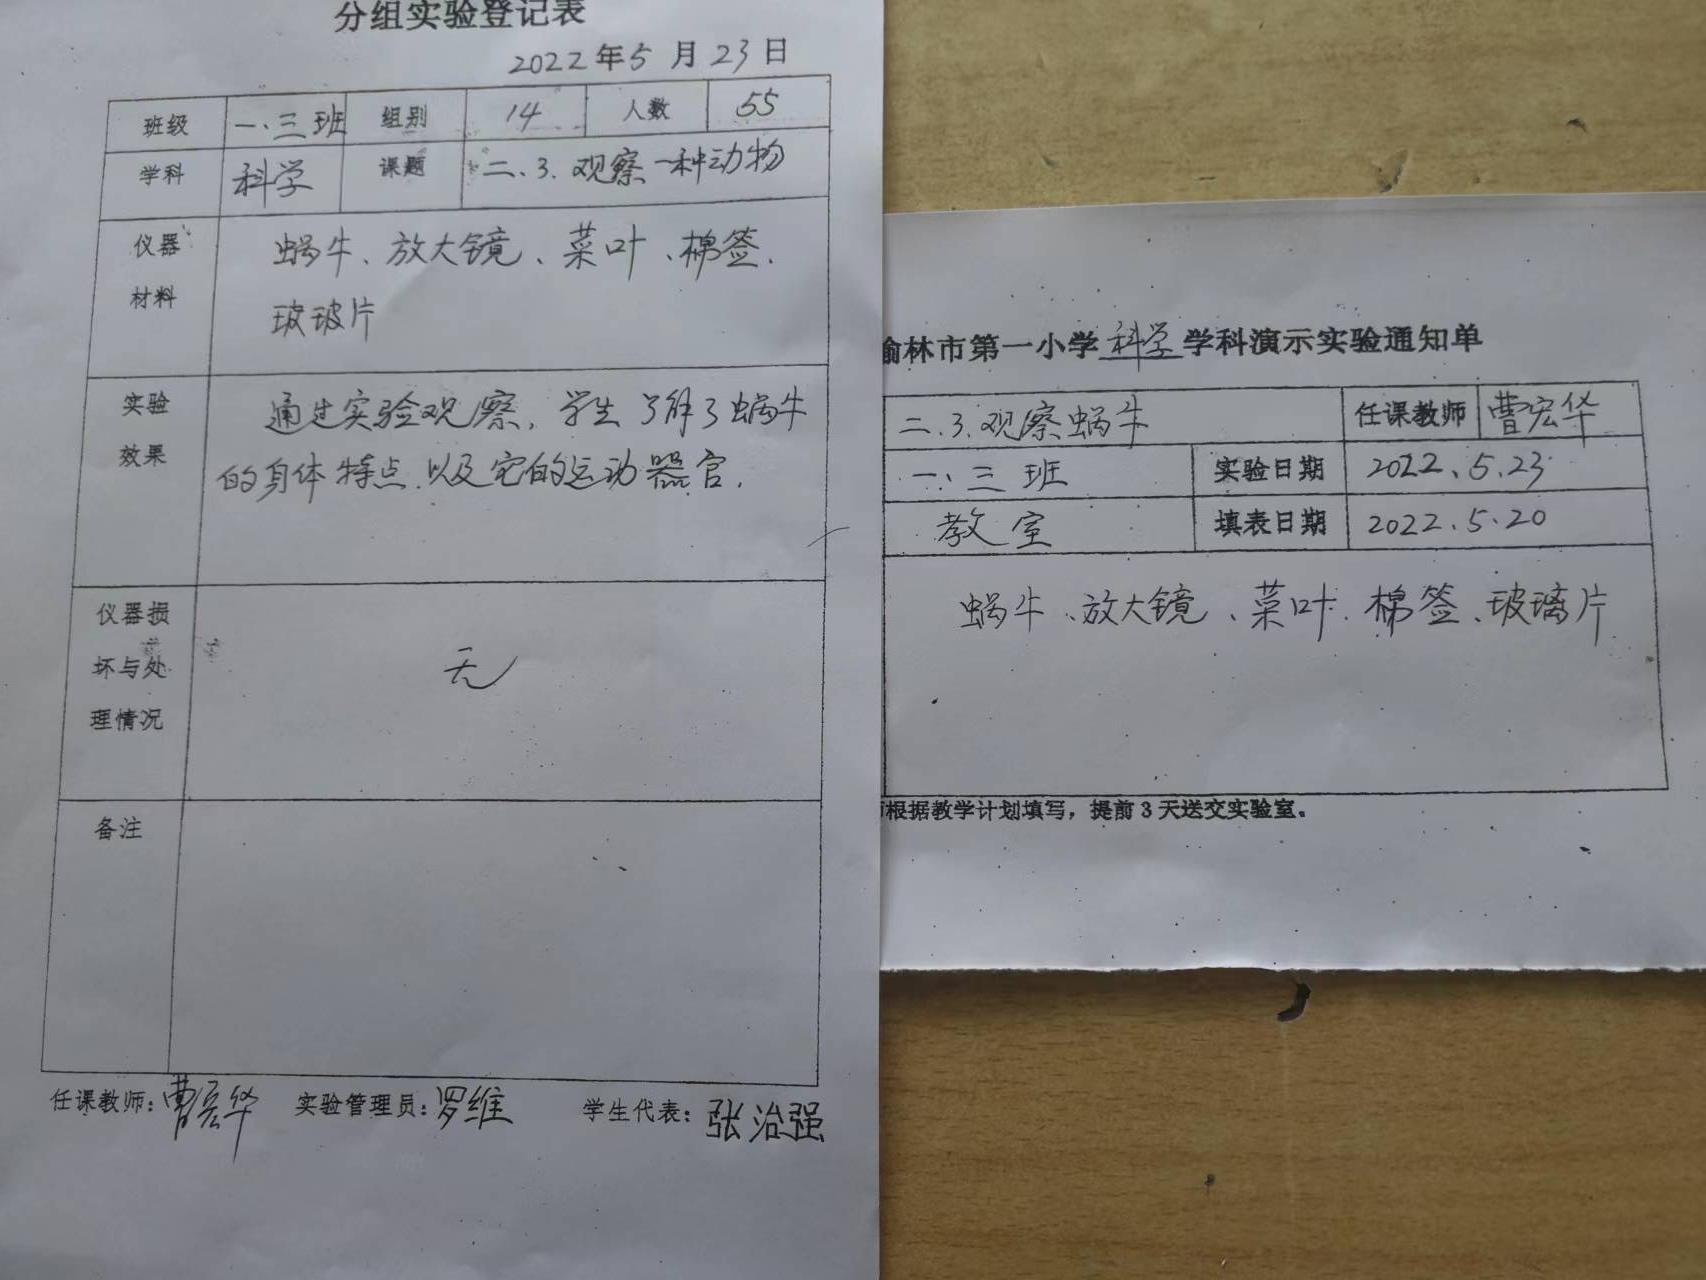 分组实验登记表
2022年5月23日
班级 一.三班 组别 14 人数 55
学科 科学 课题 二.3.观察一种动物
仪器材料
蜗牛、放大镜、菜叶、棉签.
玻玻片
实验效果
通过实验观察,学生了解了蜗牛
的身体特点.以及它的运动器官.
仪器损坏与处理情况
无
备注
任课教师:曹宏华 实验管理员:罗维 学生代表:张治强
榆林市第一小学科学学科演示实验通知单
二.3.观察蜗牛 任课教师 曹宏华
一.三班 实验日期 2022.5.23
教室 填表日期 2022.5.20
蜗牛、放大镜、菜叶.棉签、玻璃片
根据教学计划填写，提前3天送交实验室。